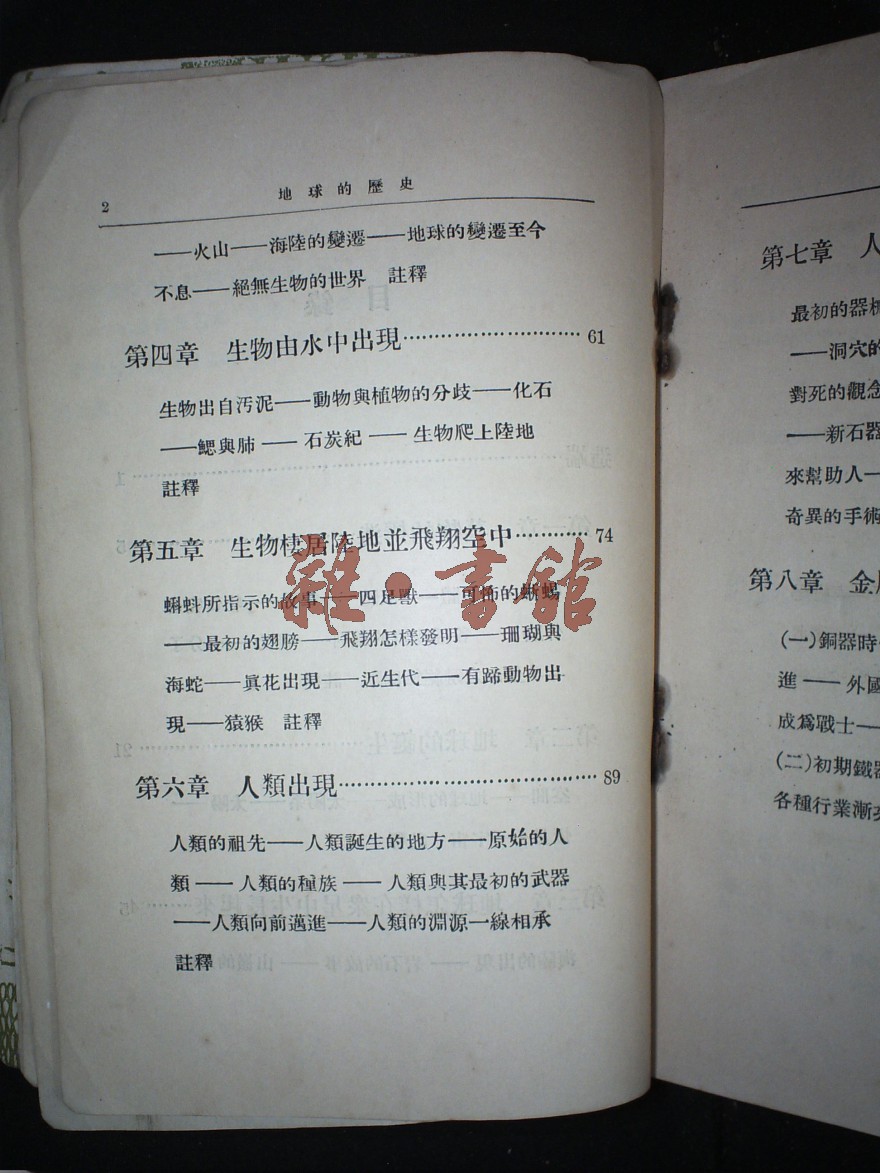 2
地球的歷史
——火山——海陸的變遷——地球的變遷至今
不息——絕無生物的世界 註釋
第四章 生物由水中出現…………………………61
生物出自汚泥——動物與植物的分歧——化石
——鰓與肺——石炭紀——生物爬上陸地
註釋
第五章 生物棲居陸地並飛翔空中…………74
蝌蚪所指示的故事——四足獸——可怖的蜥蜴
——最初的翅膀——飛翔怎樣發明——珊瑚與
海蛇——眞花出現——近生代——有蹄動物出
現——猿猴 註釋
第六章 人類出現…………………………………89
人類的祖先——人類誕生的地方——原始的人
類——人類的種族——人類與其最初的武器
——人類向前邁進——人類的淵源一線相承
註釋
雜·書館
第七章 人
最初的器械
——洞穴的
對死的觀念
——新石器
來幫助人—
奇異的手術
第八章 金
(一)銅器時
進——外國
成爲戰士——
(二)初期鐵器
各種行業漸